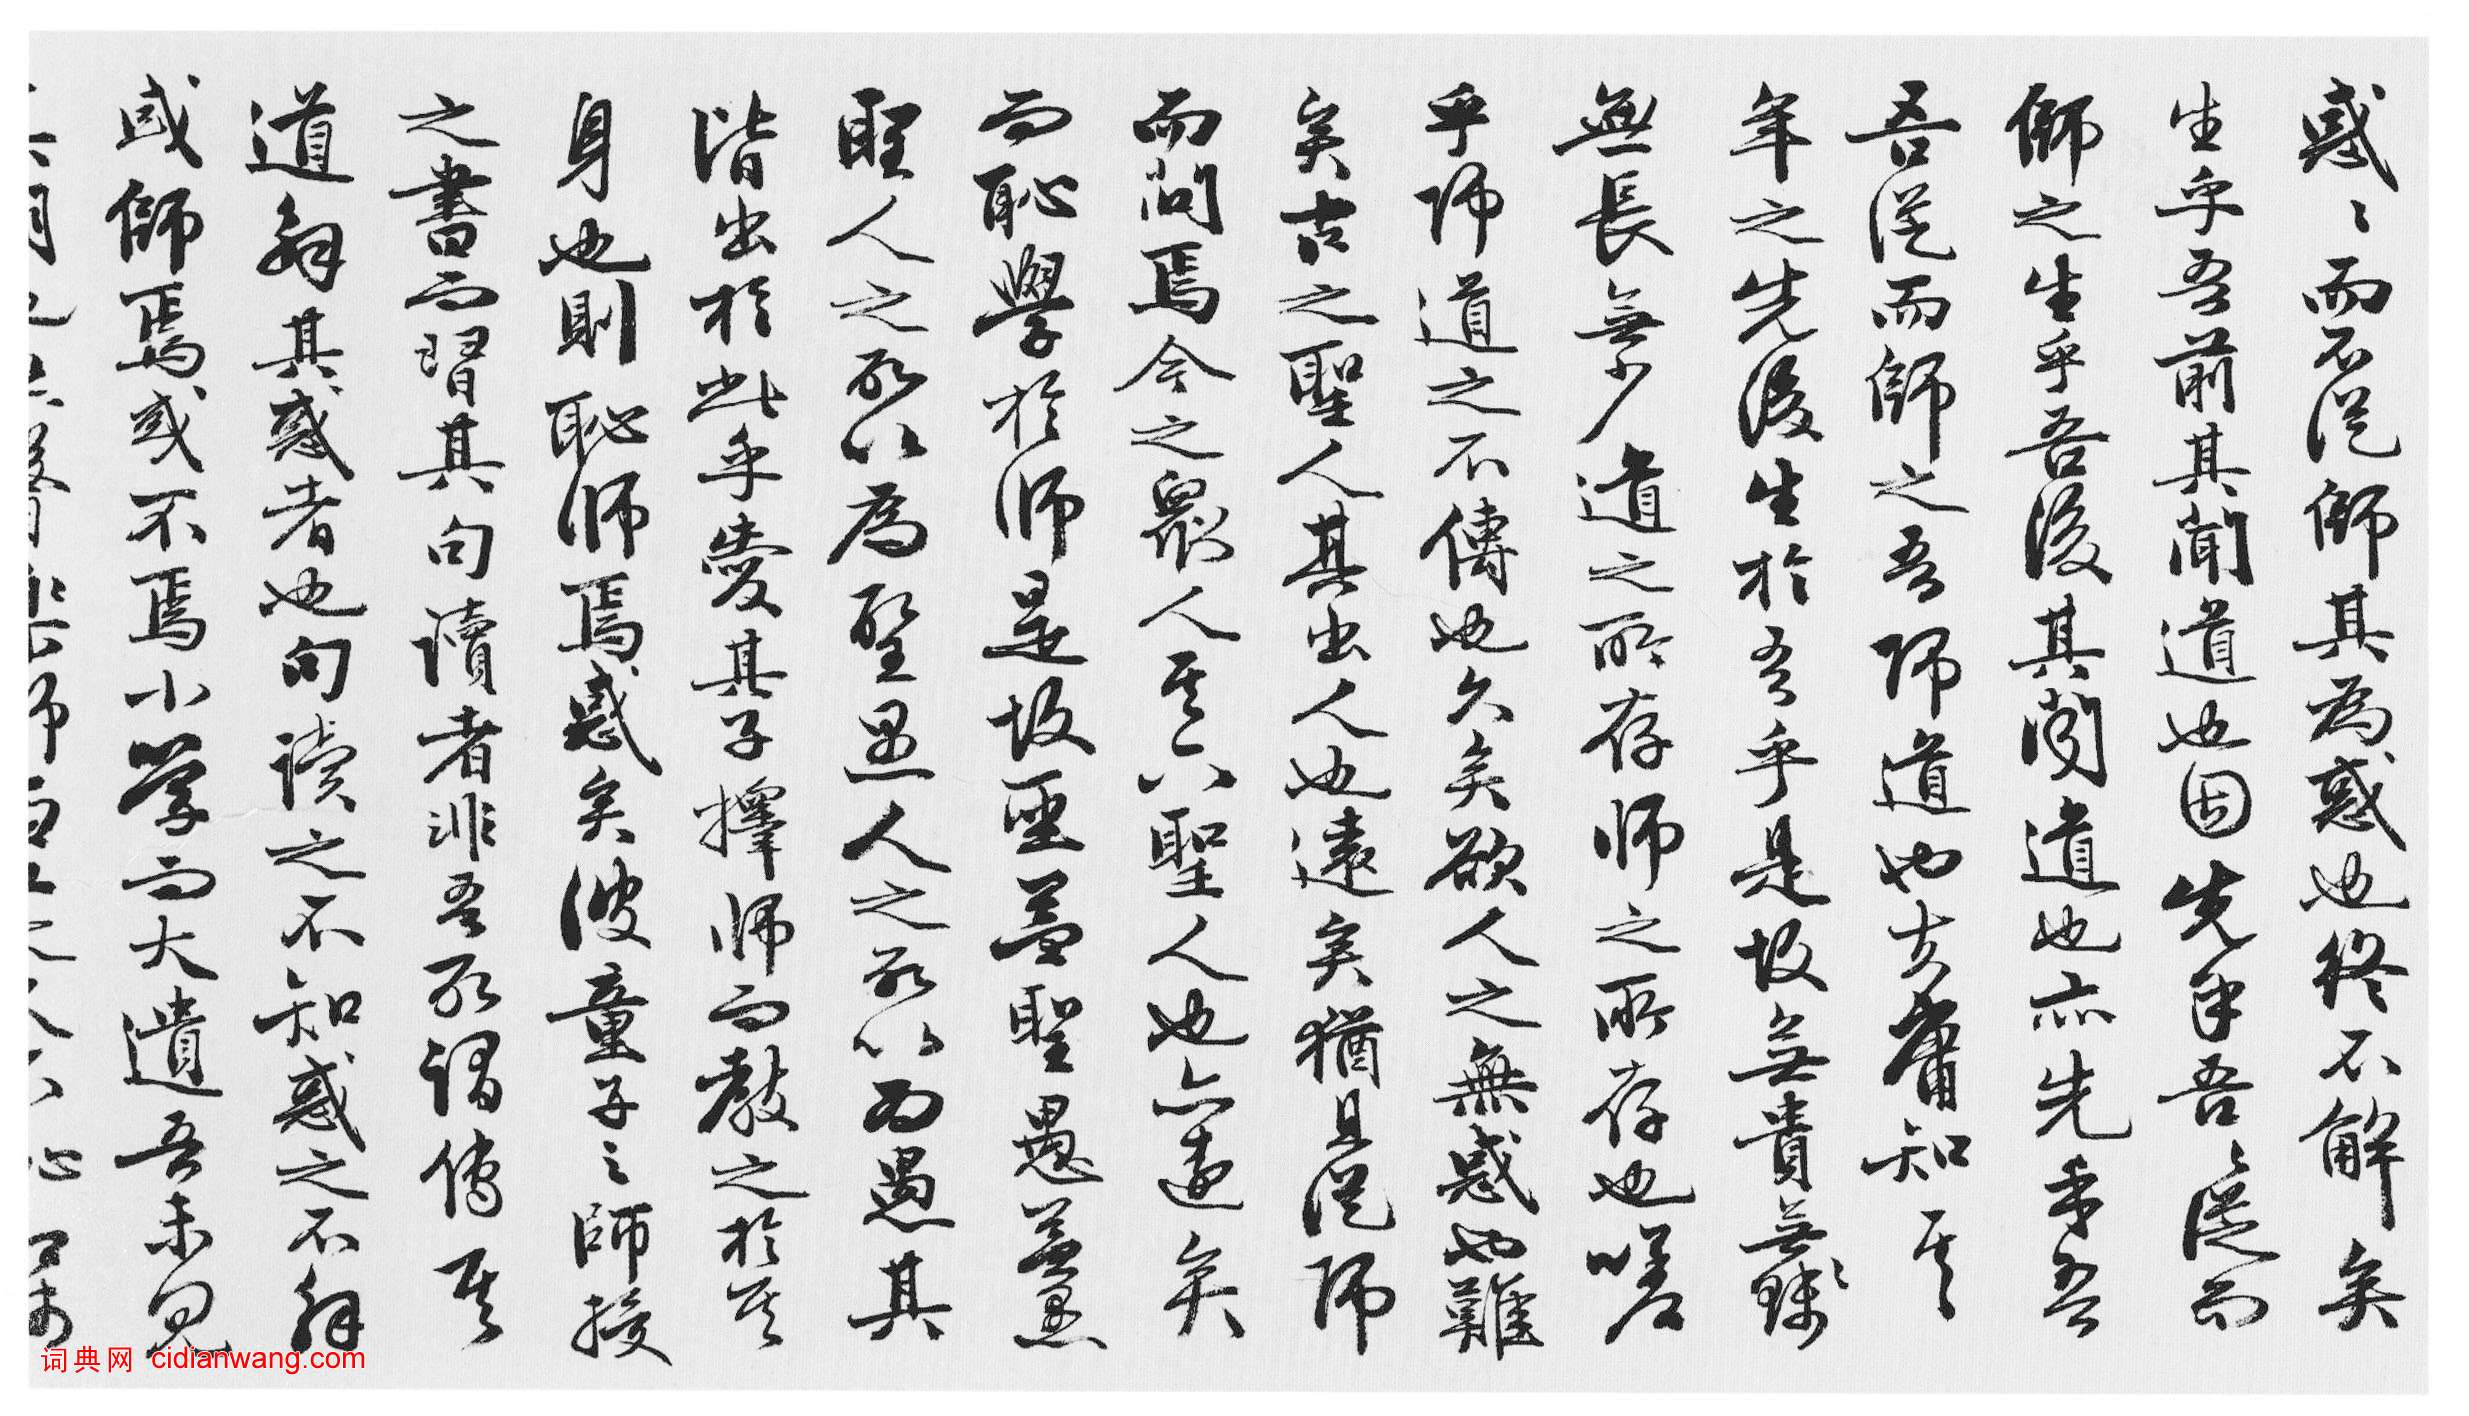 惑〻而不從師其為惑也終不解矣
生乎吾前其聞道也固先乎吾〻從而
師之生乎吾後其聞道也亦先乎吾
吾從而師之吾師道也夫庸知其
年之先後生於吾乎是故無貴無賤
無長無少道之所存師之所存也嗟
乎師道之不傳也久矣欲人之無惑也難
矣古之聖人其出人也遠矣猶且從師
而問焉今之眾人其下聖人也亦遠矣
而恥學於師是故聖益聖愚益愚
聖人之所以為聖愚人之所以為愚其
皆出於此乎愛其子擇師而教之於其
身也則恥師焉惑矣彼童子之師授
之書而習其句讀者非吾所謂傳其
道解其惑者也句讀之不知惑之不解
或師焉或不焉小學而大遺吾未見
词典网 cidianwang.com